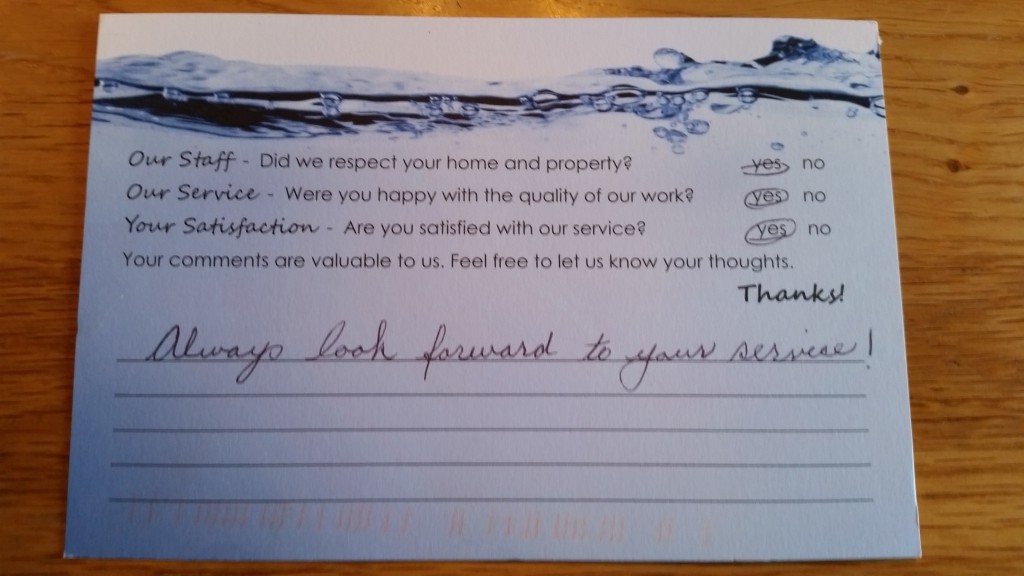 Our Staff - Did we respect your home and property? yes no
Our Service - Were you happy with the quality of our work? yes no
Your Satisfaction - Are you satisfied with our service? yes no
Your comments are valuable to us. Feel free to let us know your thoughts.
Thanks!
Always look forward to your service!